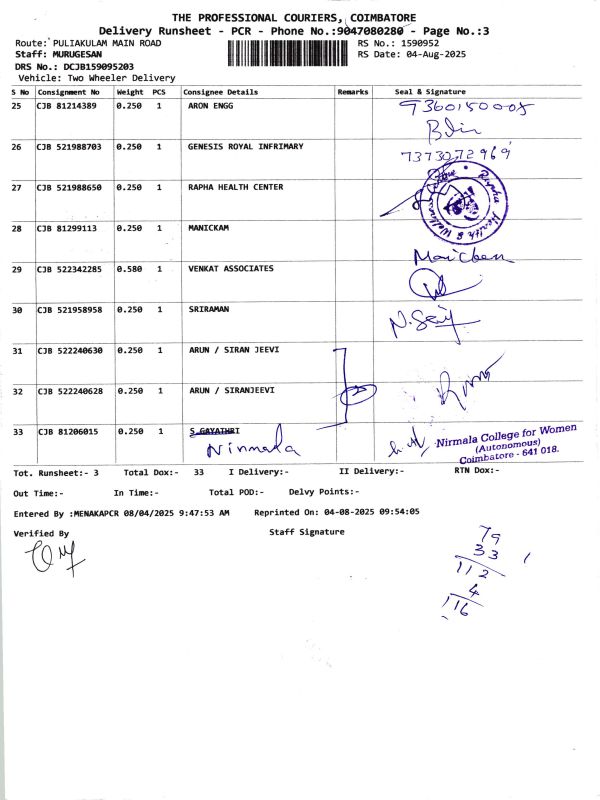 THE PROFESSIONAL COURIERS, COIMBATORE
Delivery Runsheet - PCR - Phone No.:9047080280 - Page No.:3
Route: PULIAKULAM MAIN ROAD
RS No.: 1590952
Staff: MURUGESAN
RS Date: 04-Aug-2025
DRS No.: DCJB159095203
Vehicle: Two Wheeler Delivery
S No Consignment No Weight PCS Consignee Details Remarks Seal & Signature
25 CJB 81214389 0.250 1 ARON ENGG 9360150005
26 CJB 521988703 0.250 1 GENESIS ROYAL INFRIMARY 7373072969
27 CJB 521988650 0.250 1 RAPHA HEALTH CENTER
Rapha Health &
28 CJB 81299113 0.250 1 MANICKAM
29 CJB 522342285 0.580 1 VENKAT ASSOCIATES
30 CJB 521958958 0.250 1 SRIRAMAN
31 CJB 522240630 0.250 1 ARUN / SIRAN JEEVI
32 CJB 522240628 0.250 1 ARUN / SIRANJEEVI
2
33 CJB 81206015 0.250 1 S GAYATHRI
Nirmala
Nirmala College for Women
(Autonomous)
Coimbatore - 641 018.
Tot. Runsheet:- 3 Total Dox:- 33 I Delivery:- II Delivery:- RTN Dox:-
Out Time:- In Time:- Total POD:- Delvy Points:-
Entered By :MENAKAPCR 08/04/2025 9:47:53 AM Reprinted On: 04-08-2025 09:54:05
Verified By Staff Signature
79
33
112
4
116